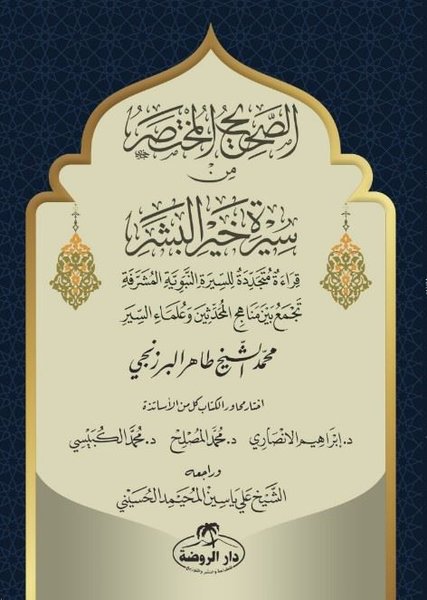 الصَّحِيحُ المُخْتَصَرُ
مِنْ
سِيرَةِ خَيْرِ البَشَرِ
قِرَاءَةٌ مُتَجَدِّدَةٌ لِلسِّيرَةِ النَّبَوِيَّةِ المُشَرَّفَةِ
تَجْمَعُ بَيْنَ مَنَاهِجِ المُحَدِّثِينَ وَعُلَمَاءِ السِّيَرِ
محمّد الشيخ طاهر البرزنجي
اختار محاور الكتاب كل من الأساتذة
د. إبْرَاهِيم الأنْصَارِي د. مُحَمَّد المُصْلِح د. مُحَمَّد الكُبَيْسِي
وراجعه
الشَّيْخ عَلِي يَاسِين المُحَيْمِد الحُسَيْنِي
دار الروضة
للطباعة والنشر والتوزيع